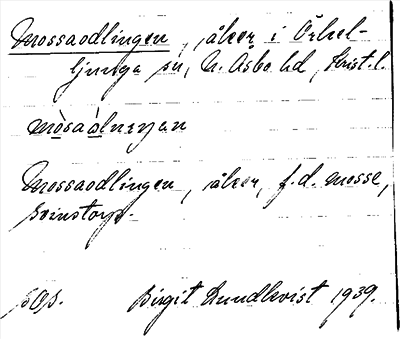 Mossaodlingen, åker i Örkel-
ljunga sn, N. Åsbo hd, Krist. l.
mòsaòlnenan
Mossaodlingen, åker, f.d. mosse,
Svinstorp.
Birgit Lundkvist 1939.